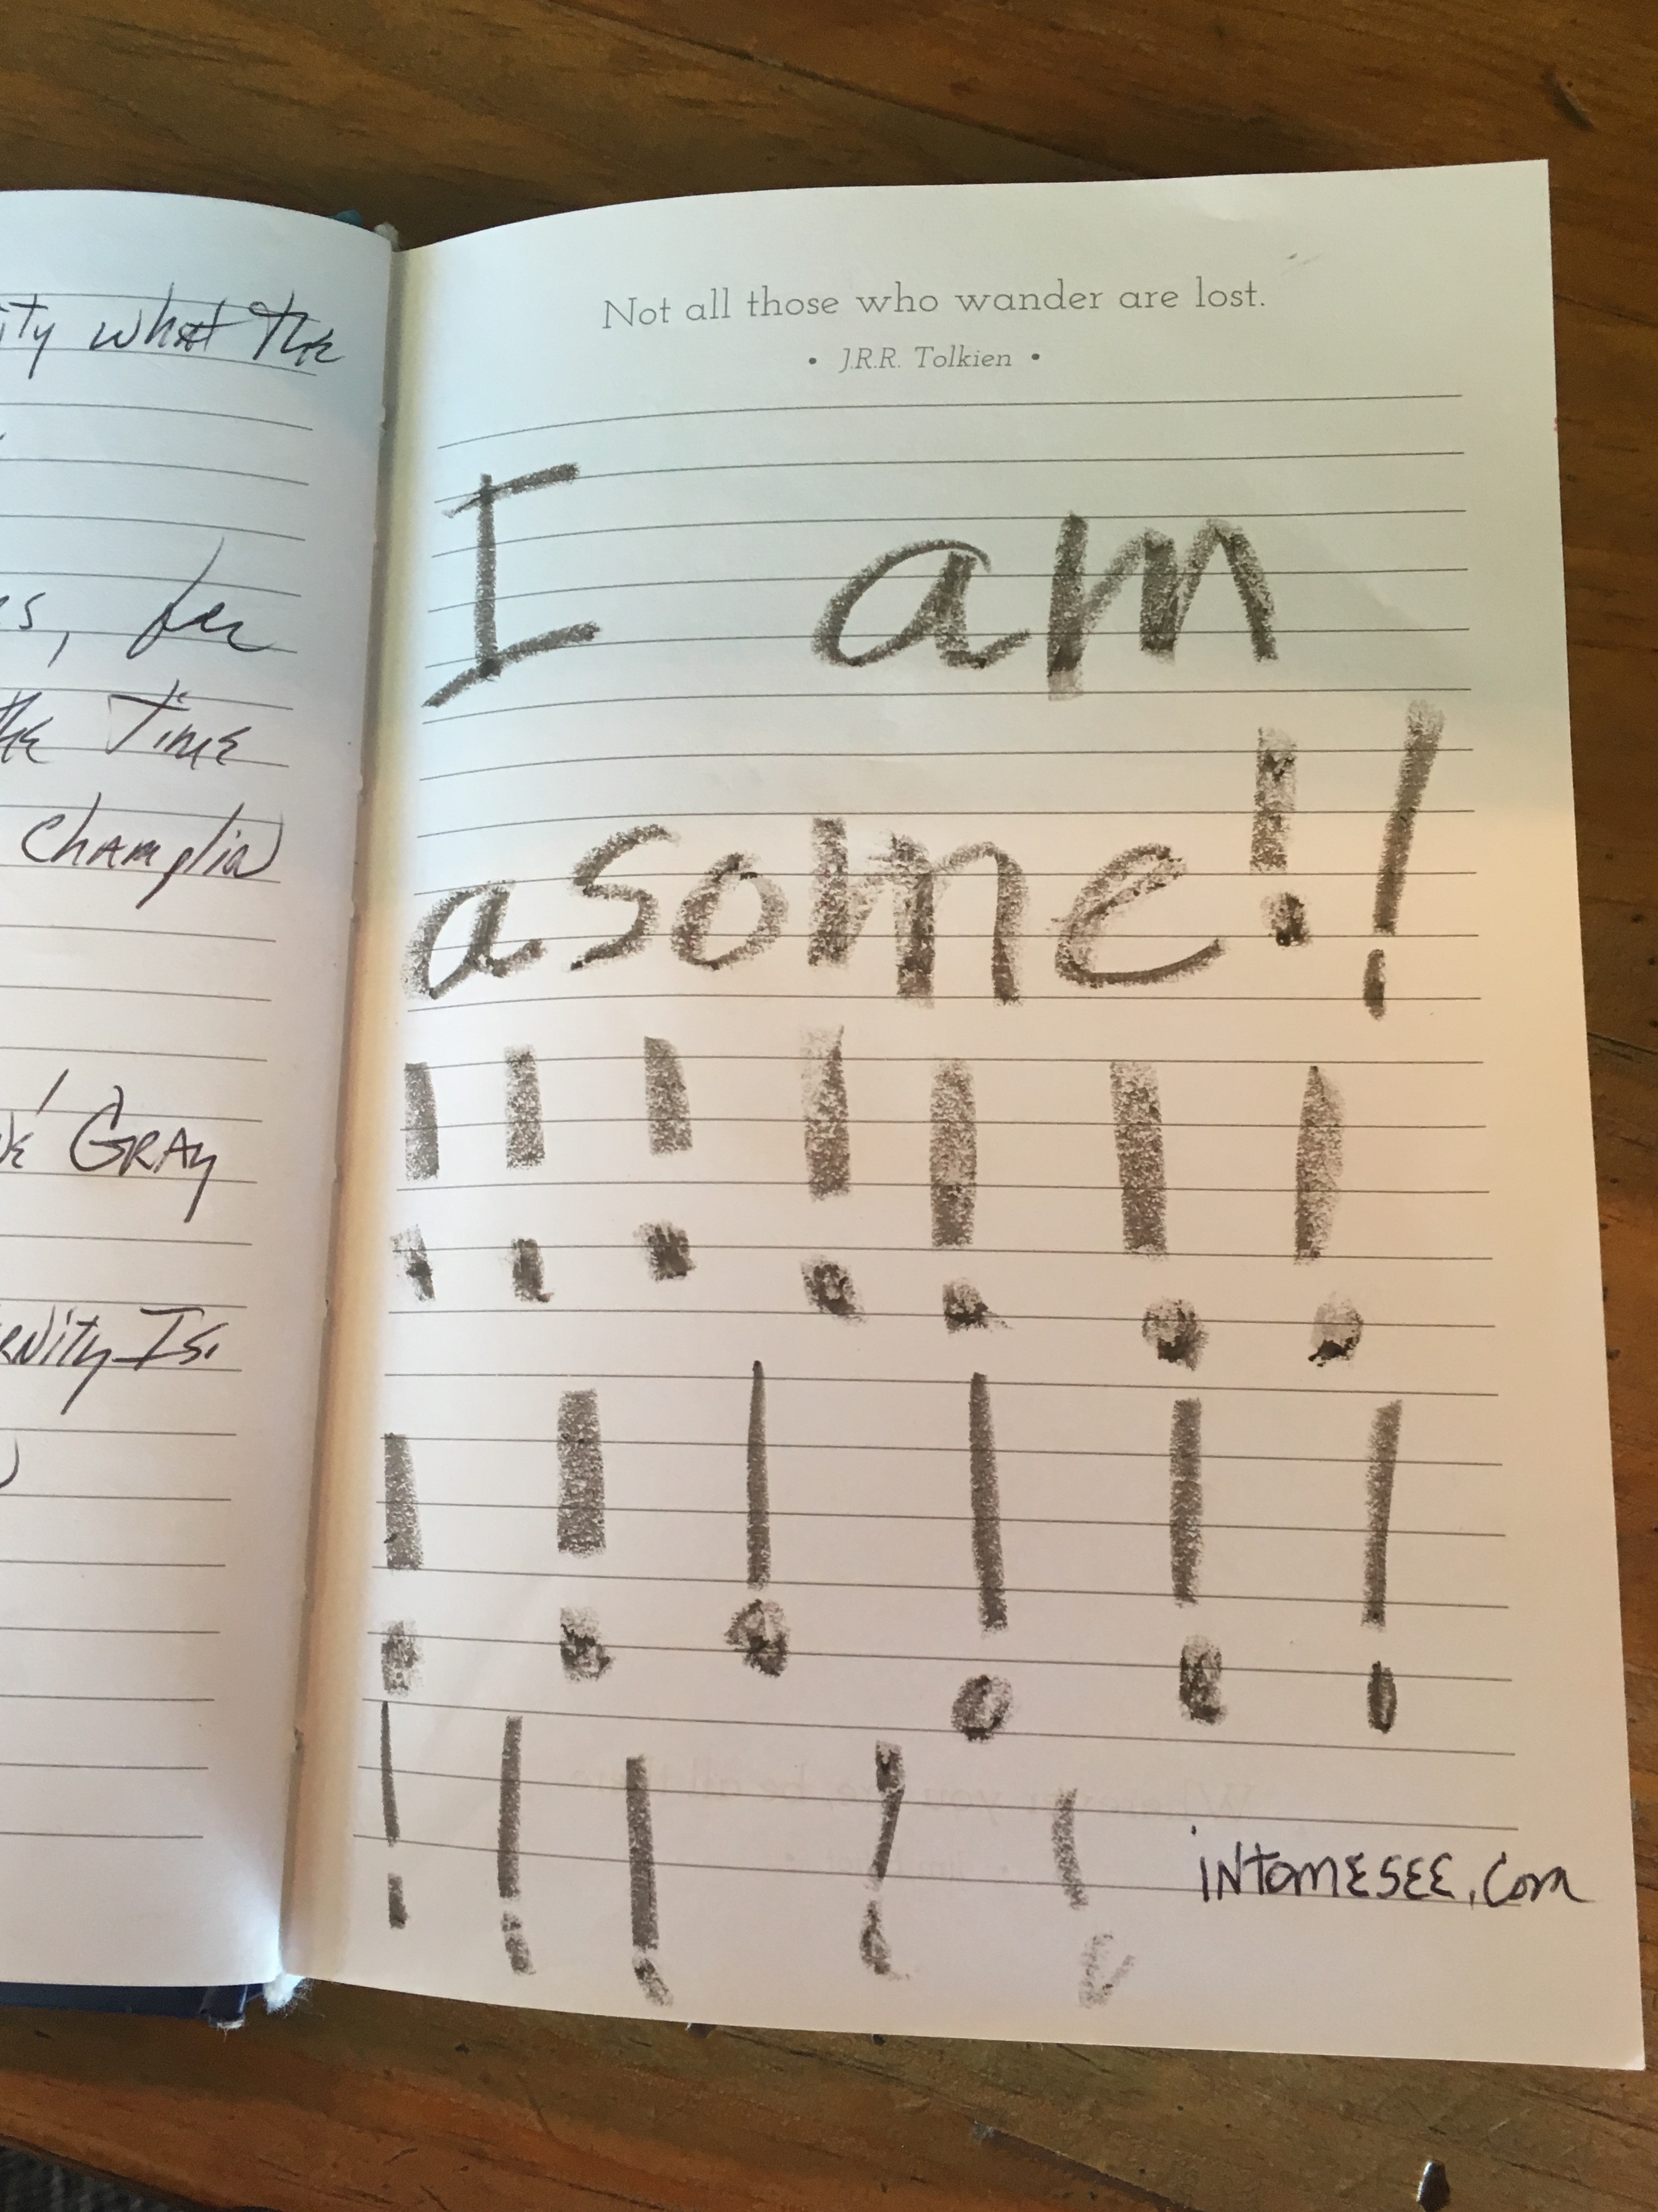 what the
, for
the Time
Champlin
Gray
Is.
Not all those who wander are lost.
• J.R.R. Tolkien •
I am
asome!!
!!!!!!!
!!!!!!
!!!!!
iNtomESEE.com